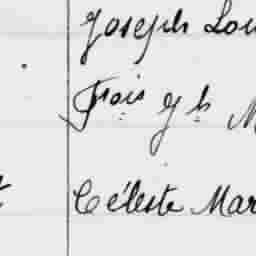 Joseph Lou
Frois Jh M
Céleste Mar